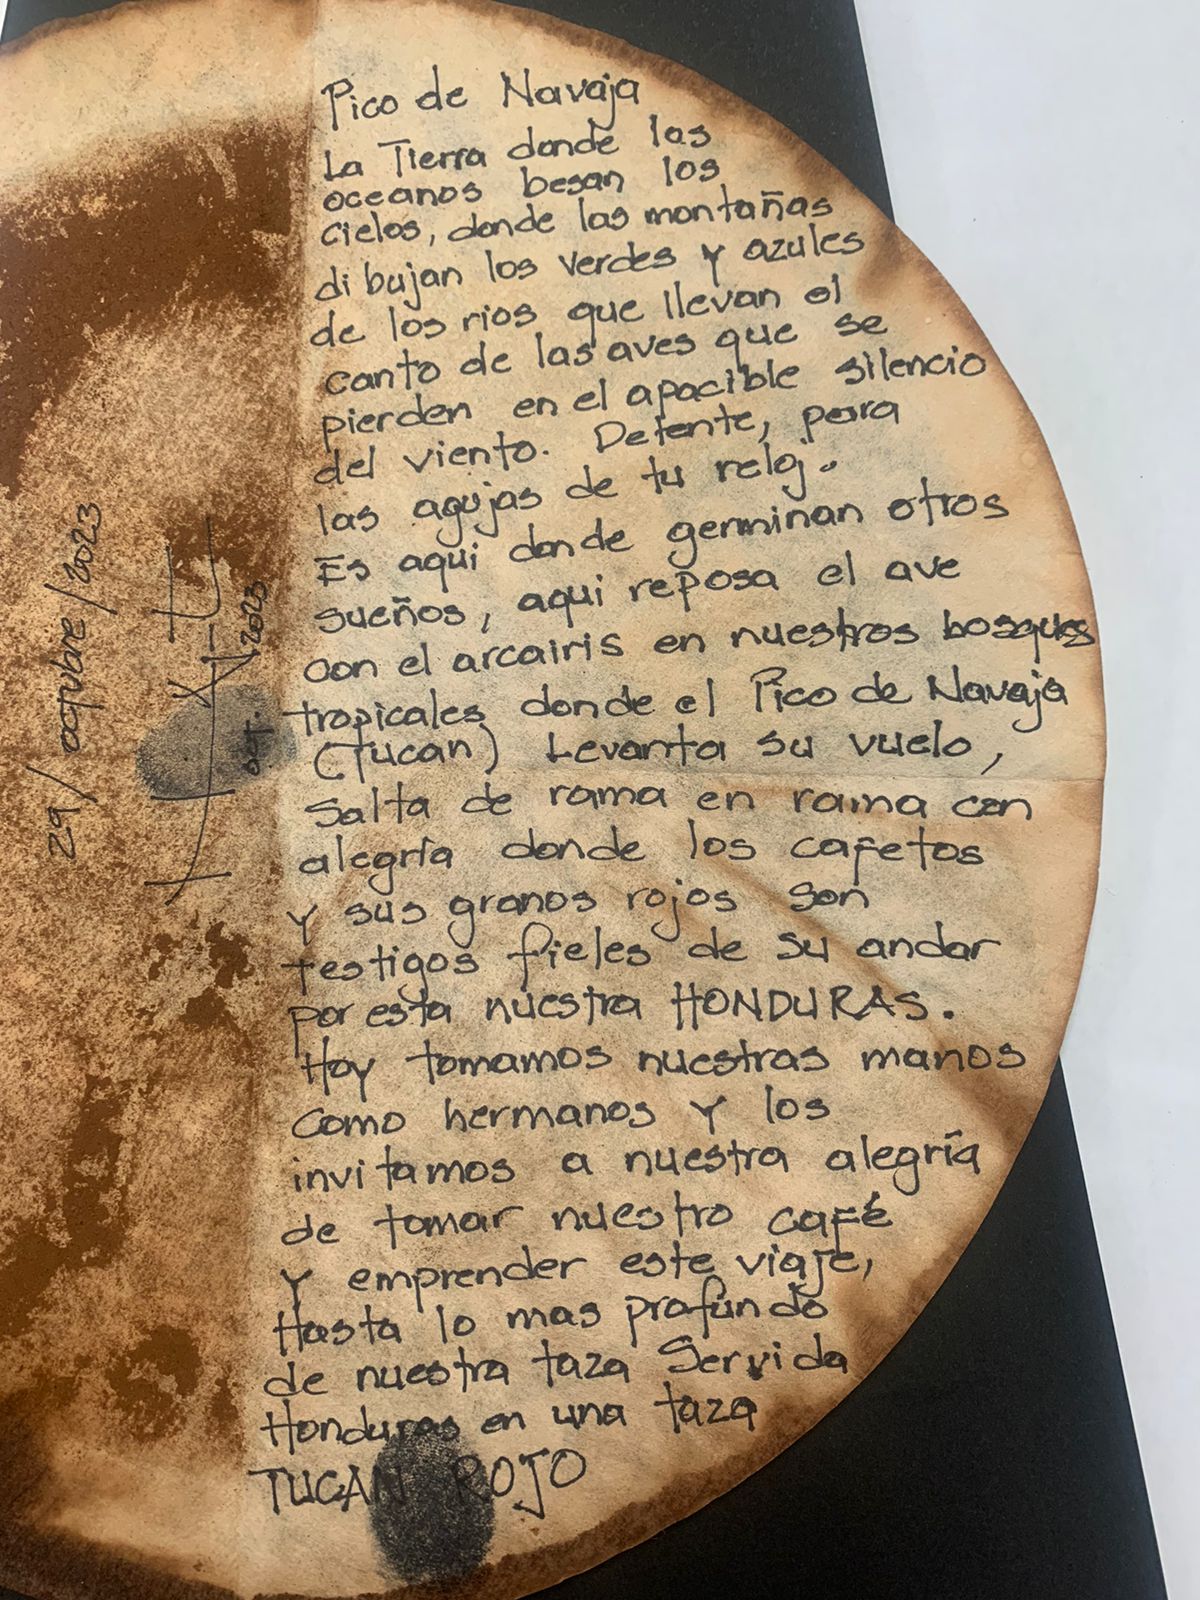 Pico de Navaja
La Tierra donde las
oceanos besan los
cielos, donde las montañas
dibujan los verdes y azules
de los rios que llevan el
canto de las aves que se
pierden en el apacible silencio
del viento. Detente, para
las agujas de tu reloj.
Es aqui donde germinan otros
sueños, aqui reposa el ave
con el arcairis en nuestros bosques
tropicales donde el Pico de Navaja
(Tucan) Levanta su vuelo,
Salta de rama en rama con
alegría donde los cafetos
y sus granos rojos son
testigos fieles de su andar
por esta nuestra HONDURAS.
Hoy tomamos nuestras manos
como hermanos y los
invitamos a nuestra alegría
de tomar nuestro café
y emprender este viaje,
Hasta lo mas profundo
de nuestra taza Servida
Honduras en una taza
TUCAN ROJO
29/octubre/2023
oct. 2023